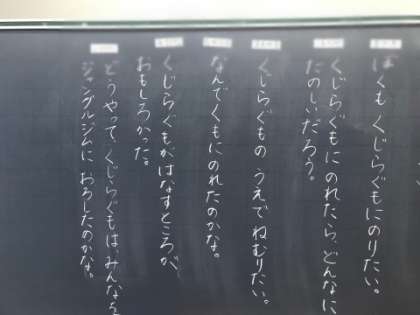 ぼくも くじらぐもにのりたい。
くじらぐもにのれたら、どんなに
たのしいだろう。
くじらぐもの うえで ねむりたい。
なんでくもにのれたのかな。
くじらぐもがはなすところが、
おもしろかった。
どうやって、くじらぐもは、みんなを
ジャングルジムに おろしたのかな。